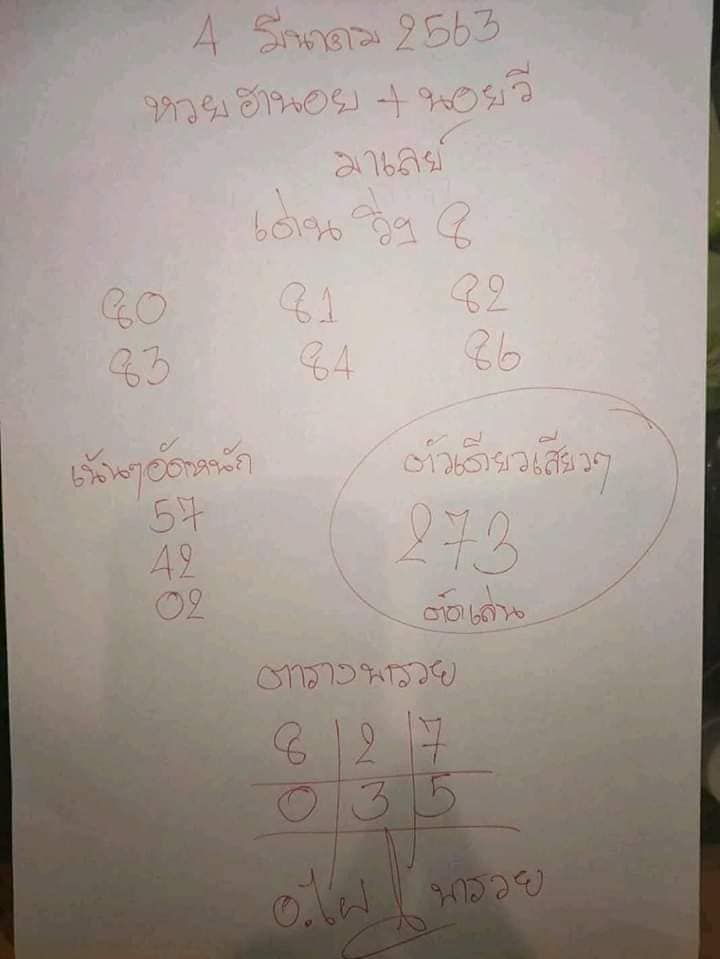 4 มีนาคม 2563
หวยฮานอย + นอยวี
มาเลย์
เด่น วิ่ง 8
80 81 82
83 84 86
เน้นๆอัดหนัก
57
42
02
ตัวเดียวเสียวๆ
273
ตัดเล่น
ตารางพารวย
8 2 7
0 3 5
อ.ไผ่ พารวย